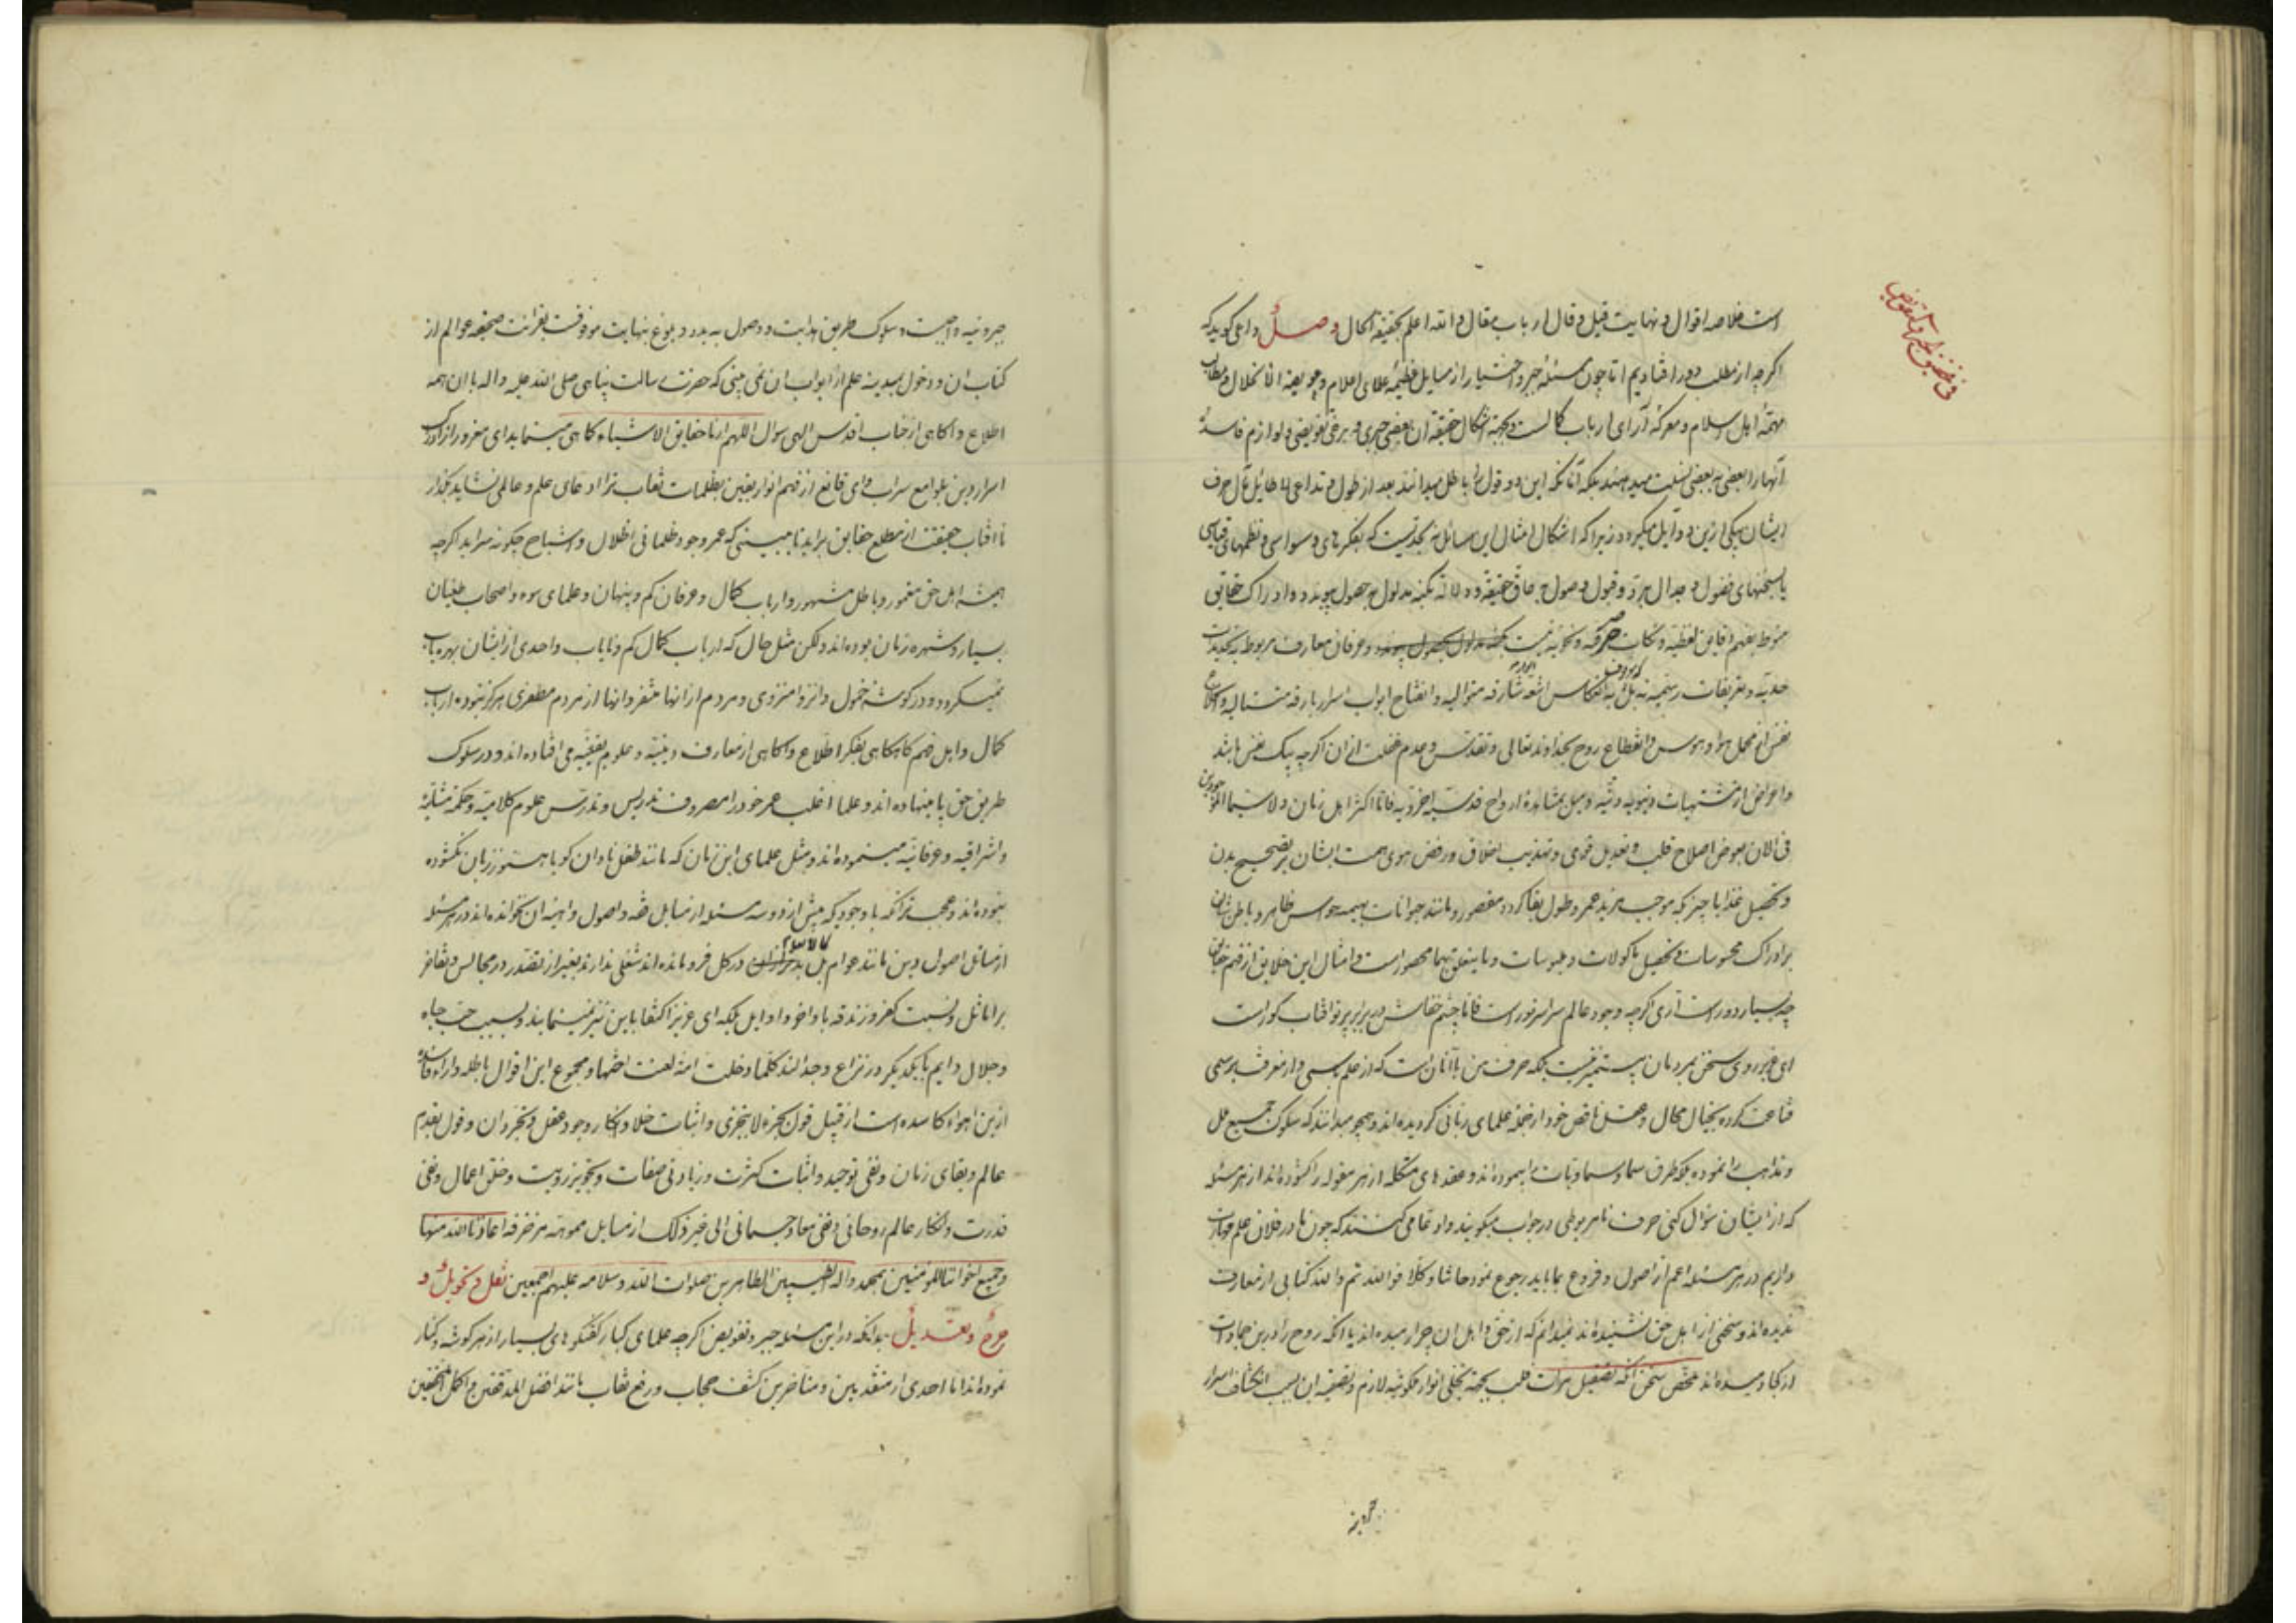 است خلاصه اقوال و نهایت قیل و قال ارباب مقال و الله اعلم بحقیقة الحال وصل داعی گوید که
اگرچه از مطلب دور افتادیم اما چون مسئله جبر و اختیار از مسایل عظیمه علمای اعلام و عویصة الانحلال و مطالب
مهمّهٔ اهل اسلام و معرکهٔ آرای ارباب کمالست و بجهة اشکال حقیقة آن بعضی جبری و برخی تفویضی و لوازم فاسدهٔ
آنها را بعضی به بعضی نسبت میدهند بلکه آنانکه این دو قول را باطل میدانند بعد از طول و تداعی لا طائل مآل حرف
ایشان بیکی ازین دو آیل میگردد زیرا که اشکال امثال این مسائل نه بحدیست که بفکرهای وسواسی و نظمهای قیاسی
یا سخنهای فضول و جدال برد و قبول وصول بحاق حقیقة و دلالة بکنه مدلول بحصول پیوندد و ادراک حقایق
منوط بفهم دقایق لفظیه و نکات صرفیه و نحویه نیست و عرفان معارف مربوط بتحدیدات
حدیّه و تعریفات رسمیه نه بل انعکاس اشعه شارقه متوالیه و انفتاح ابواب اسرار بارقه متتالیه
نفس از محل هوا و هوس و انقطاع روح بخداوند تعالی و تقدس و عدم غفلت از ان اگرچه یک نفس باشد
و اعراض از مشتهیات دنیویه دنیّه و میل بمشاهدهٔ ارواح قدسیه اخرویه فاما اکثر اهل زمان و لاسیما الموجودین
فی الان بعوض اصلاح قلب و تعدیل قوی و تهذیب اخلاق و رفض هوی همت ایشان بر تصحیح بدن
و تحصیل غذا یا چیزیکه موجب مزید عمر و طول بقا گردد مقصور و مانند حیوانات بهیمه حواس ظاهر و باطن شان
بر ادراک محسوسات و تحصیل ماکولات و ملبوسات و ما یتعلق بهما محصور است و امثال این خلایق از فهم حقایق
چه بسیار دور است آری اگرچه وجود عالم سراسر نور است فاما چشم خفاش در برابر پرتو آفتاب کور است
ای عزیز روی سخن بمردمان بیتمیز نیست بلکه حرف من با آنان است که از علم باسمی و از معرفت برسمی
قناعت کرده بخیال محال و عقل ناقص خود از جمله علمای ربانی گردیده اند و همچو میدانند که سلوک جمیع ملل
و مذاهب را نموده بلکه طرق سما و سماویات را پیموده اند و عقدهای مشکله از هر مقوله را گشوده اند از هر مسئله
که از ایشان سؤال کنی حرف نامربوطی در جواب میگویند و ادعا می کنند که چون ما در فلان علم مهارت
داریم در هر مسئله اعم از اصول و فروع بما باید رجوع نمود حاشا و کلا فو الله ثم و الله کتابی از معارف
ندیده اند و سخنی از اهل حق نشنیده اند نمیدانم که از حق و اهل ان چرا رمیده اند یا آنکه روح را در این جمادات
از کجا دمیده اند ملخص سخن آنکه تصقیل مرآت قلب بجهة تجلی انوار ملکوتیه لازم و تصفیه ان بسبب انکشاف اسرار
جبروتیه واجبست و سلوک طریق هدایت و وصول به بدو و بلوغ بنهایت موقوفست بقرائت صحیفه عوالم از
کتاب ان و دخول بمدینه علم از ابواب ان نمی بینی که حضرت رسالت پناهی صلی الله علیه و اله با ان همه
اطلاع و آگاهی از جناب اقدس الهی سوال اللهم ارنا حقایق الاشیاء کما هی مینماید ای مغرور از ادراک
اسرار دین بلوامع سراب و ای قانع از فهم انوار یقین بظلمات نقاب ترا ادعای علم و عالمی نشاید بگذار
تا افتاب حقیقت از مطلع حقایق براید تا ببینی که عمر وجود ظلمانی اظلال و اشباح چگونه سراید اگرچه
همیشه اهل حق مغمور و باطل مشهور و ارباب کمال و عرفان کم و پنهان و علمای سوء و اصحاب طغیان
بسیار و شهره زمان بوده اند و لکن مثل حال که ارباب کمال کم و نایاب و احدی از ایشان بهره یاب
نمیگردد و در گوشه خمول و انزوا منزوی و مردم از انها متنفر و انها از مردم مطلقا هرگز نبوده ارباب
کمال و اهل فهم گاه گاهی بفکر اطلاع و آگاهی از معارف دینیّه و علوم یقینیّه می افتاده اند و در سلوک
طریق حق پا مینهاده اند و علما اغلب عمر خود را مصروف تدریس و تدرس علوم کلامیّه و حکمة مشائیّه
و اشراقیه و عرفانیّه مینموده اند و مثل علمای این زمان که مانند طفل نادان گویا هنوز زبان نگشوده
نبوده اند و عجب تر آنکه با وجودیکه بیش از دو سه مسئله از مسایل فقه و اصول و امثال ان نخوانده اند در هر مسئله
از مسائل اصول دین مانند عوام کالانعام بل در کل فرومانده اند شغلی ندارند بغیر از تصدر در مجالس و تفاخر
بر اماثل و نسبت کفر و زندقه باواخر و اوایل بلکه ای عزیز اکتفا باین نیز نمینمایند و بسبب حب جاه
و جلال دایم با یکدیگر در نزاع و جدالند کلما دخلت امة لعنت اختها و مجموع این اقوال باطله و اراء فاسده
ازین اهواء کاسده است از قبیل قول بجزء لا یتجزی و اثبات خلا و انکار وجود عقل و تجرد ان و قول بقدم
عالم و بقای زمان و نفی توحید و اثبات کثرت و زیادتی صفات و تجویز رویت و خلق اعمال و نفی
قدرت و انکار عالم روحانی و نفی معاد جسمانی الی غیر ذلک از مسایل مموهه مزخرفه اعاذنا الله منها
و جمیع اخواننا المومنین بمحمد و اله الطیبین الطاهرین صلوات الله و سلامه علیهم اجمعین نقل و تحویل و
جرح و تعدیل بدانکه در این مسئله جبر و تفویض اگرچه علمای کبار گفتگوهای بسیار از هر گوشه و کنار
نموده اند اما احدی از متقدمین و متاخرین کشف حجاب و رفع نقاب مانند افضل المدققین و اکمل المحققین